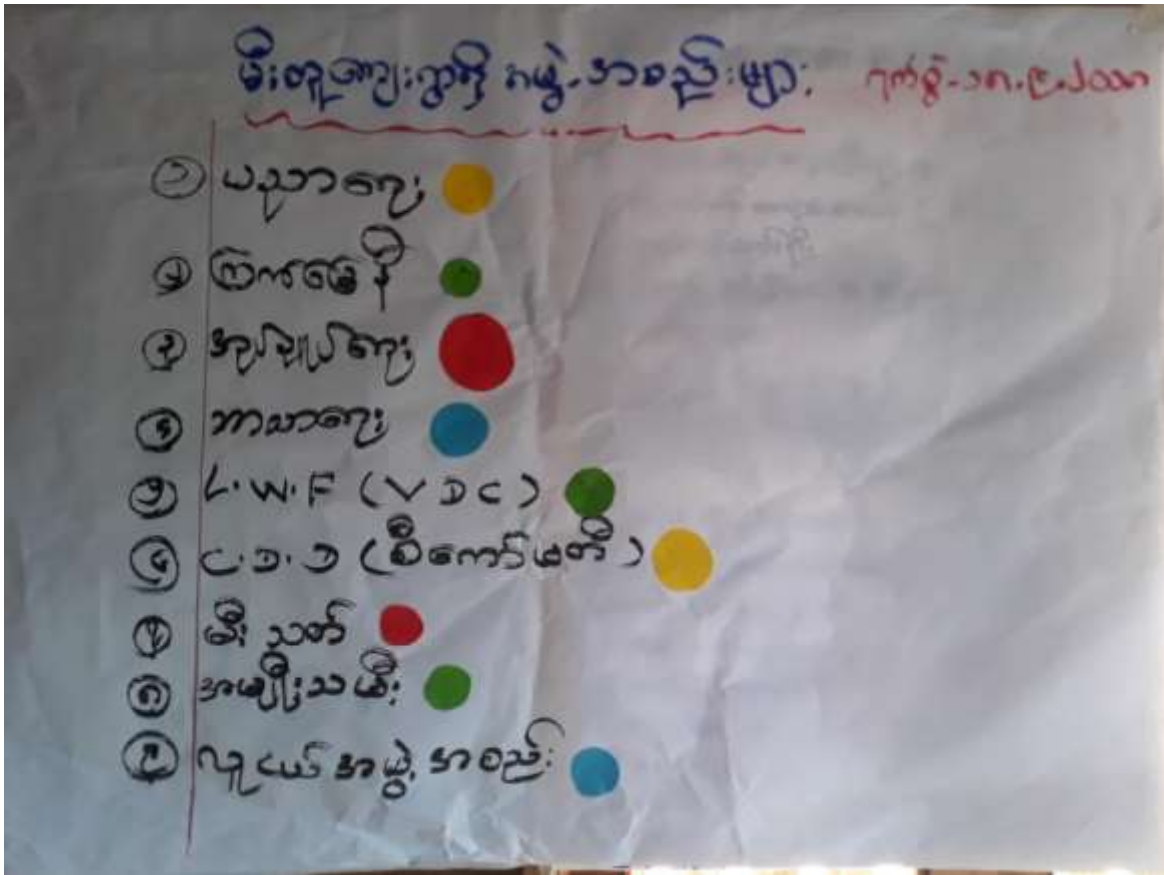 မီးတူကျေးရွာရှိ အဖွဲ့-အစည်းများ
၁ ပညာရေး
၂ ကြက်ခြေနီ
၃ အုပ်ချုပ်ရေး
၄ ဘာသာရေး
၅ L.W.F (VDC)
၆ C.D.D (စီကော်မတီ)
၇ မီးသတ်
၈ အမျိုးသမီး
၉ လူငယ်အဖွဲ့အစည်း